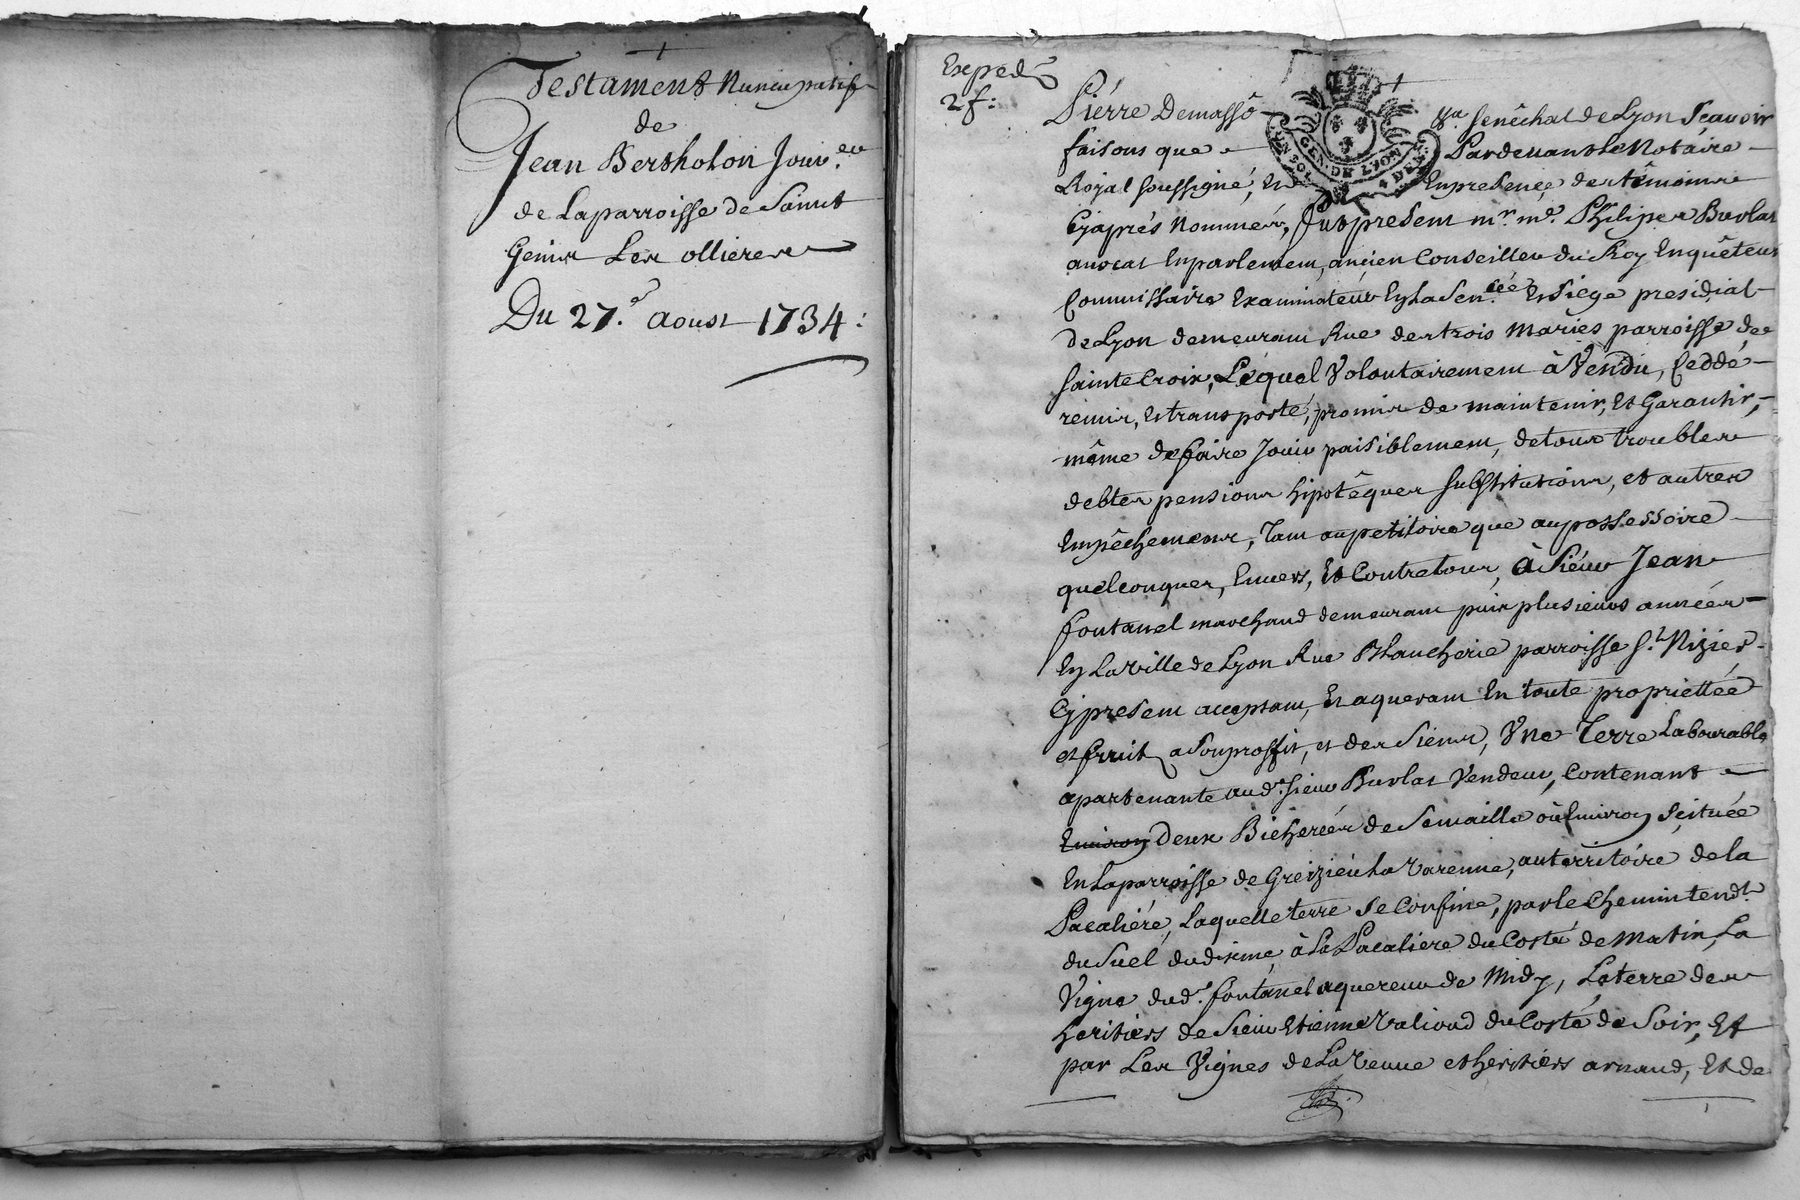 Testament Nuncupatif
de
Jean Bertholon Jouv.eau
de Laparroisse de Saint
Genis Les ollieres
Du 27.e aoust 1734:
Exped.
2 f:
Pierre Demassô gna Senêchal de Lyon Sçavoir
faisons que Pardevant Le Notaire
Royal soussigné, Et En presence des têmoins
Cyaprés Nommés, fut present mr. me. Philipes Burlat
avocat Enparlement, ancien Conseiller du Roy Enquêteur
Commissaire Examinateur En La Sen.cée Et Siege presidial
de Lyon demeurant Rue des trois Maries parroisse de
Sainte Croix, Lequel Volontairement à Vendu, Ceddé
remis, Et transporté, promis de maintenir, Et Garantir,
même de faire Jouir paisiblement, de tous troubles
debtes pensions hipotêques Substitutions, et autres
Empêchements, Tant au petitoire que au possessoire
quelconques, Envers, Et Contre tous, à Sieur Jean
fontanel marchand demeurant puis plusieurs années
En La Ville de Lyon Rue Blancherie parroisse St. Nizier
Cy present acceptant, Et aquerant En toute propriettée
et fruit a Son proffit, et des Siens, Une Terre Labourable
apartenante aud. Sieur Burlat Vendeur, Contenant
Environ Deux Bicherées de Semaille où Environ Scituée
En Laparroisse de Greizieu La Varenne, au territoire de la
Pacaliére, Laquelle terre Se Confine, par le Chemin tendt.
du Suel du dixme à La Pacaliere du Costé de Matin, La
Vigne dud. fontanel aquereur de Midy, La terre des
heritiers de Sieur Etienne Valioud du Costé de Soir, Et
par Les Vignes de La Veuve et heritiers arnaud, Et de
GEN. DE LYON